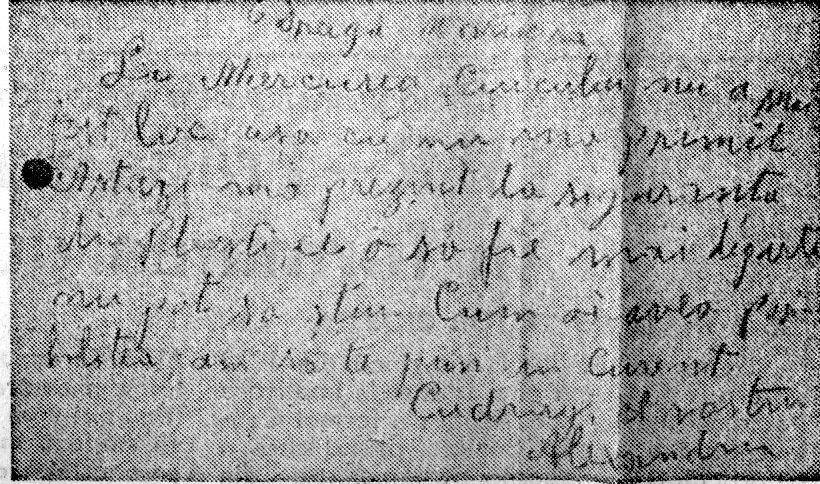 Dragă
La Mercurea Ciucului nu a mai
fost loc așa că nu m-a primit
Astăzi mă prezint la siguranța
din Ploești, ce o să fie mai départe
nu pot să știu Cum oi avea posi-
bilitea, am să te pun in curent
Cu drag, al vostru
Alexandru